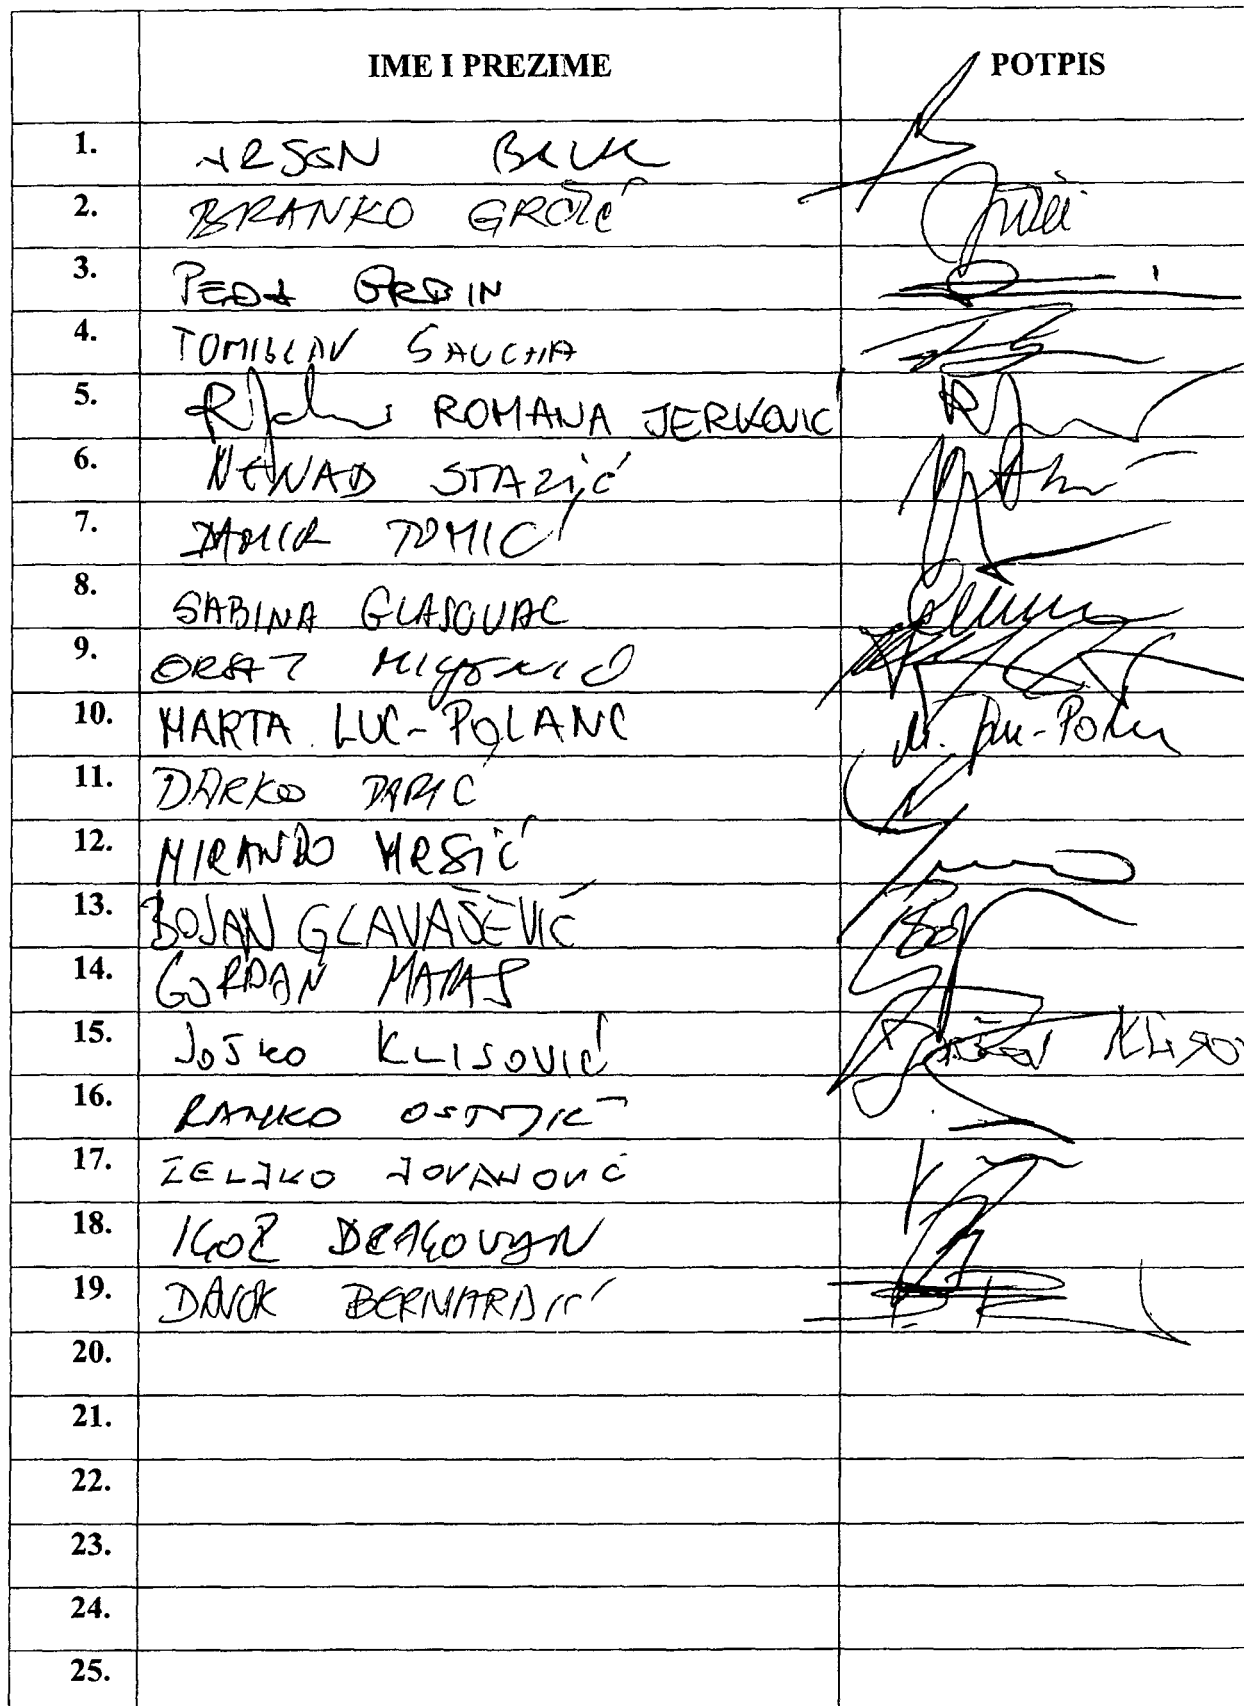 IME I PREZIME POTPIS
1. ARSEN BAUK
2. BRANKO GRČIĆ
3. PEĐA GRBIN
4. TOMISLAV SAUCHA
5. ROMANA JERKOVIC
6. NENAD STAZIĆ
7. DAMIR TOMIC
8. SABINA GLASOVAC
9. ORSAT MILJENIĆ
10. MARTA LUC-POLANC M. Luc-Polanc
11. DARKO PARIĆ
12. MIRANDO MRSIĆ
13. BOJAN GLAVAŠEVIĆ
14. GORDAN MARAS
15. JOŠKO KLISOVIĆ Joško KLISO
16. RANKO OSTOJIĆ
17. ZELJKO JOVANOVIĆ
18. IGOR DRAGOVAN
19. DAVOR BERNARDIĆ
20.
21.
22.
23.
24.
25.